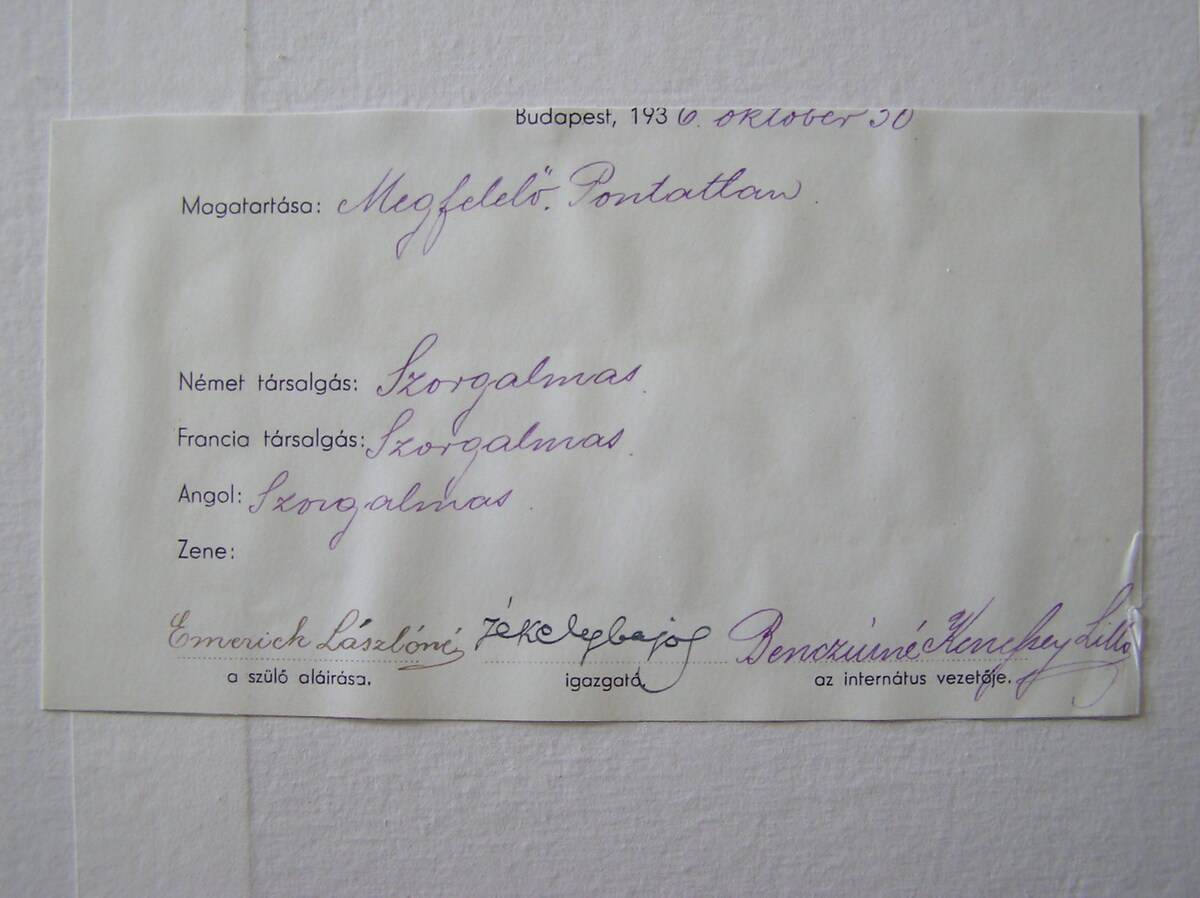 Budapest, 1936. október 30
Magatartása: Megfelelő. Pontatlan.
Német társalgás: Szorgalmas.
Francia társalgás: Szorgalmas.
Angol: Szorgalmas.
Zene:
Emerick Lászlóné Benczúrné Lilló
a szülő aláirása. igazgató. az internátus vezetője.